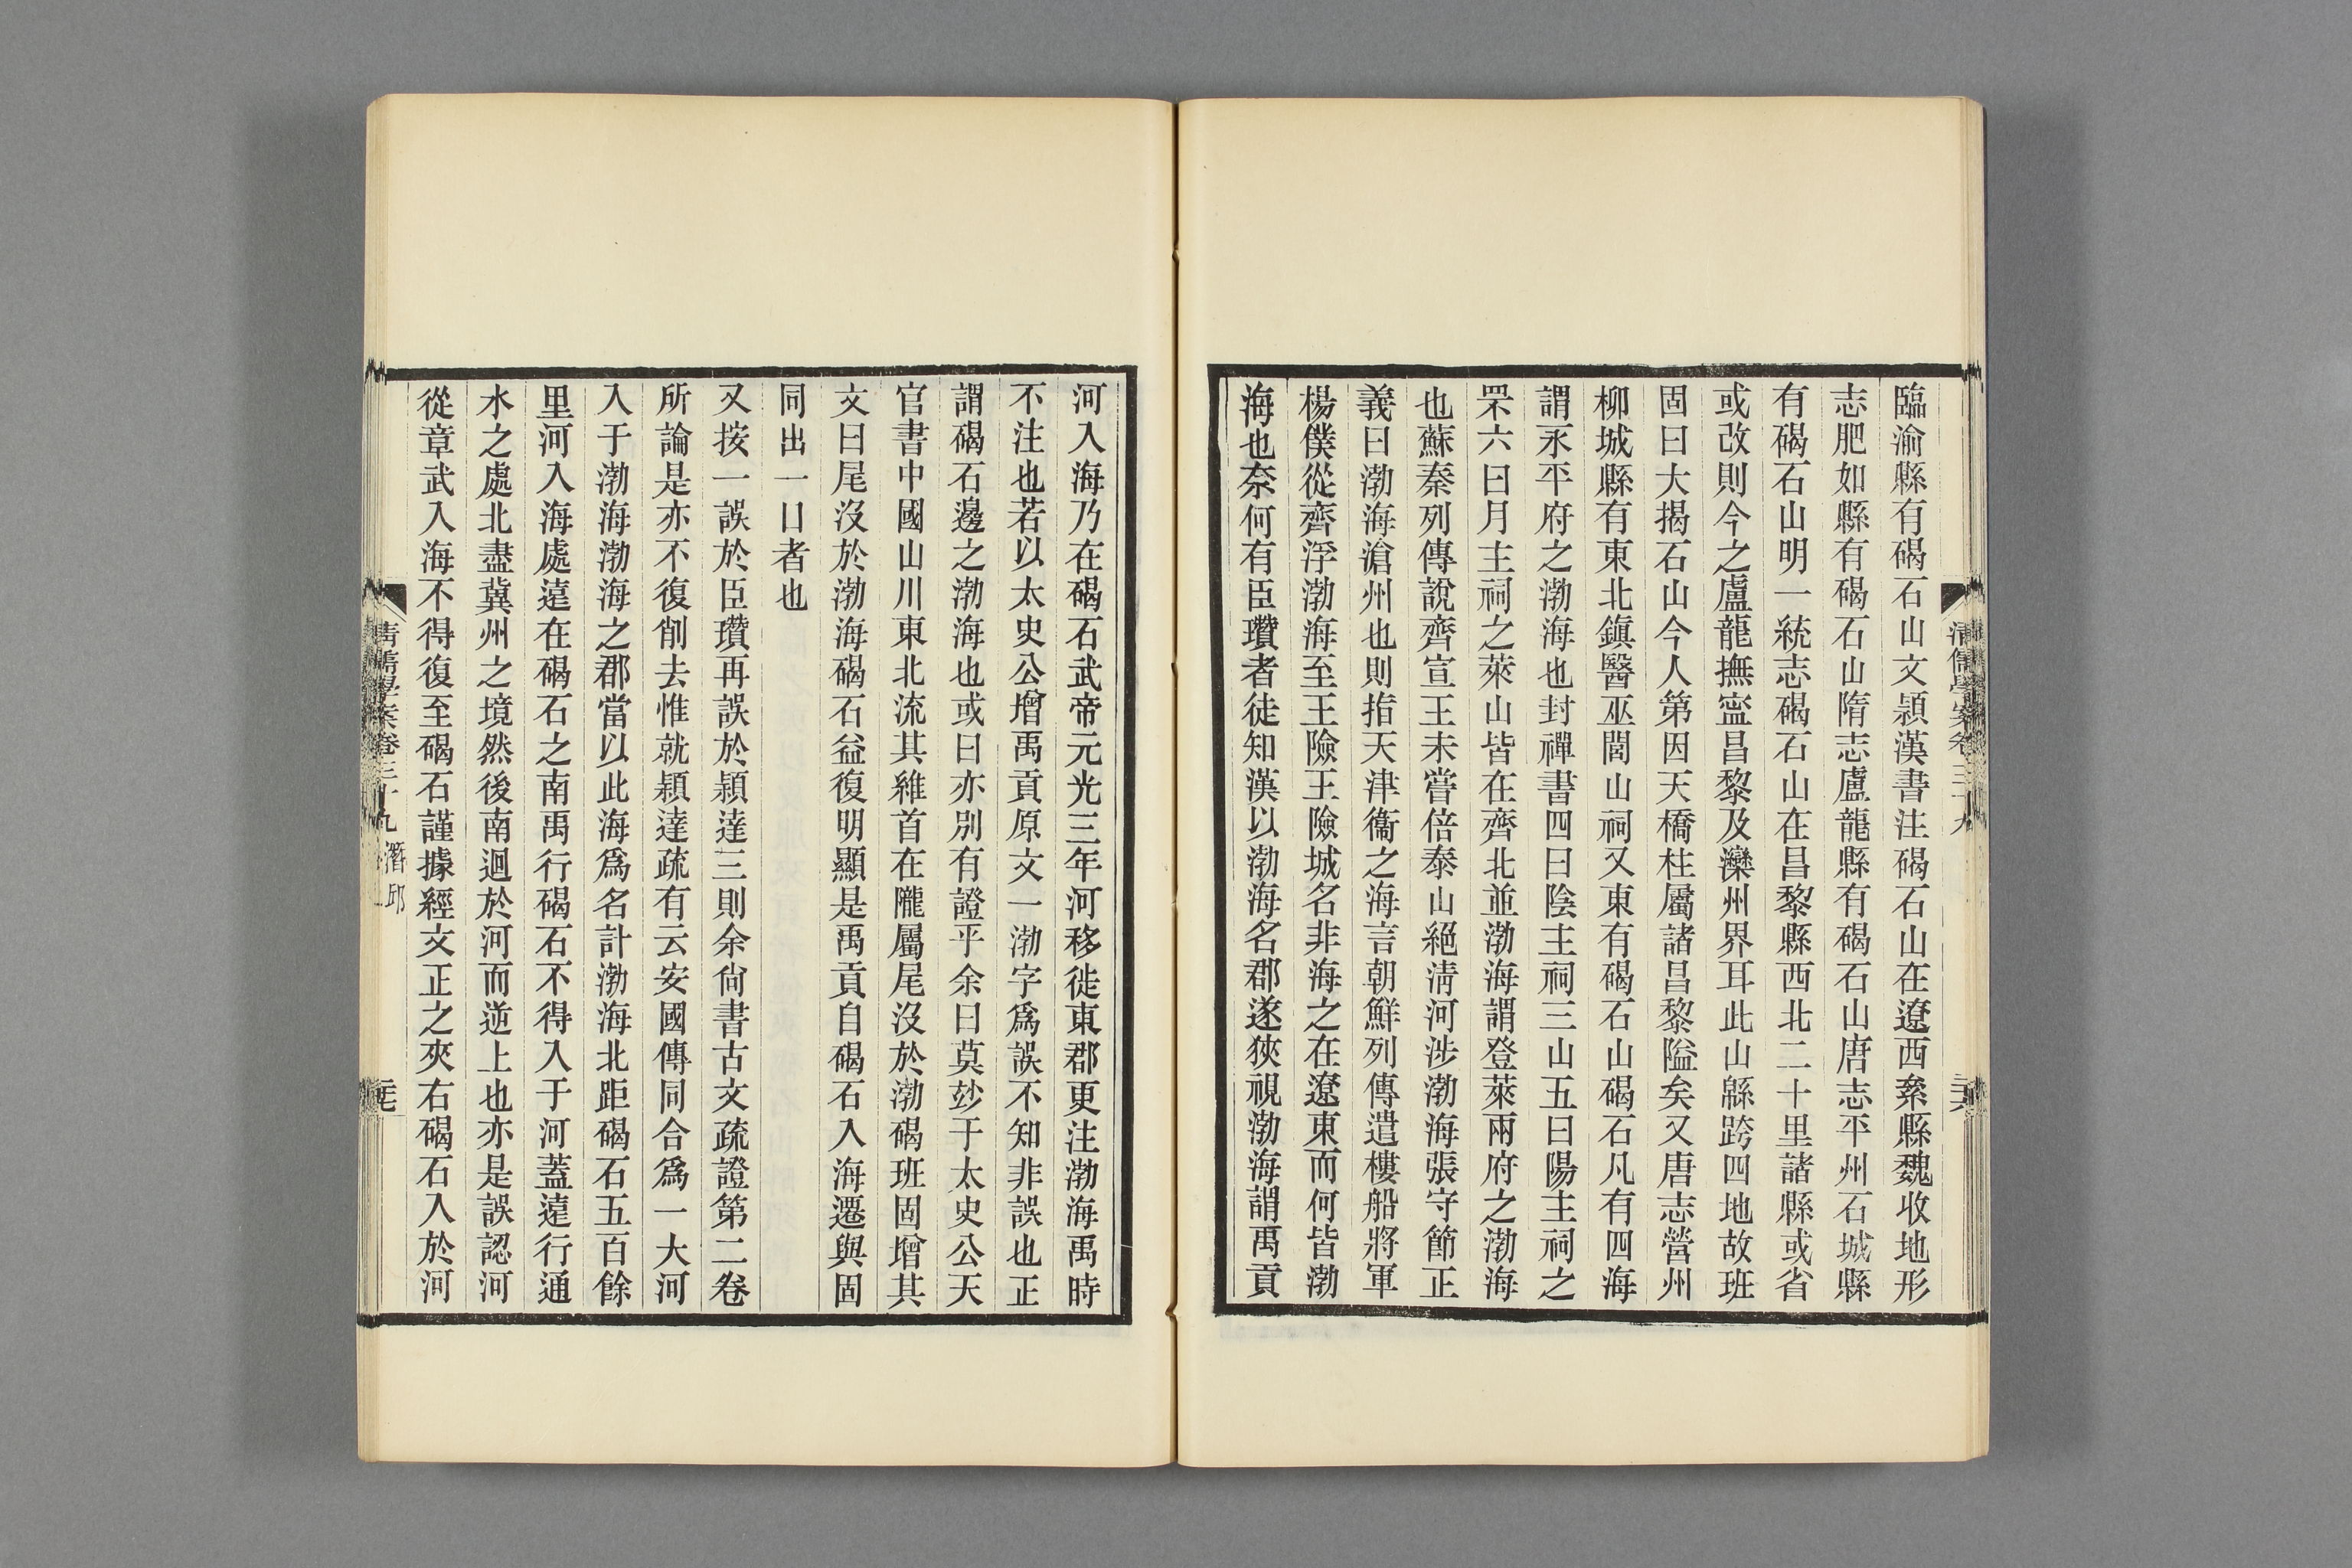 臨渝縣有碣石山文潁漢書注碣石山在遼西絫縣魏收地形
志肥如縣有碣石山隋志盧龍縣有碣石山唐志平州石城縣
有碣石山明一統志碣石山在昌黎縣西北二十里諸縣或省
或改則今之盧龍撫寍昌黎及灤州界耳此山緜跨四地故班
固曰大揭石山今人第因天橋柱屬諸昌黎隘矣又唐志營州
柳城縣有東北鎮醫巫閭山祠又東有碣石山碣石凡有四海
謂永平府之渤海也封禪書四曰陰主祠三山五曰陽主祠之
罘六曰月主祠之萊山皆在齊北並渤海謂登萊兩府之渤海
也蘇秦列傳說齊宣王未嘗倍泰山絕淸河涉渤海張守節正
義曰渤海滄州也則指天津衞之海言朝鮮列傳遣樓船將軍
楊僕從齊浮渤海至王險王險城名非海之在遼東而何皆渤
海也奈何有臣瓚者徒知漢以渤海名郡遂狹視渤海謂禹貢
清儒學案卷三十九
三六
河入海乃在碣石武帝元光三年河移徙東郡更注渤海禹時
不注也若以太史公增禹貢原文一渤字爲誤不知非誤也正
謂碣石邊之渤海也或曰亦別有證乎余曰莫玅于太史公天
官書中國山川東北流其維首在隴屬尾沒於渤碣班固增其
文曰尾沒於渤海碣石益復明顯是禹貢自碣石入海遷與固
同出一口者也
又按一誤於臣瓚再誤於穎達三則余尙書古文疏證第二卷
所論是亦不復削去惟就穎達疏有云安國傳同合爲一大河
入于渤海渤海之郡當以此海爲名計渤海北距碣石五百餘
里河入海處遠在碣石之南禹行碣石不得入于河蓋遠行通
水之處北盡冀州之境然後南迴於河而逆上也亦是誤認河
從章武入海不得復至碣石謹據經文正之夾右碣石入於河
清儒學案卷三十九 潛邱
三七